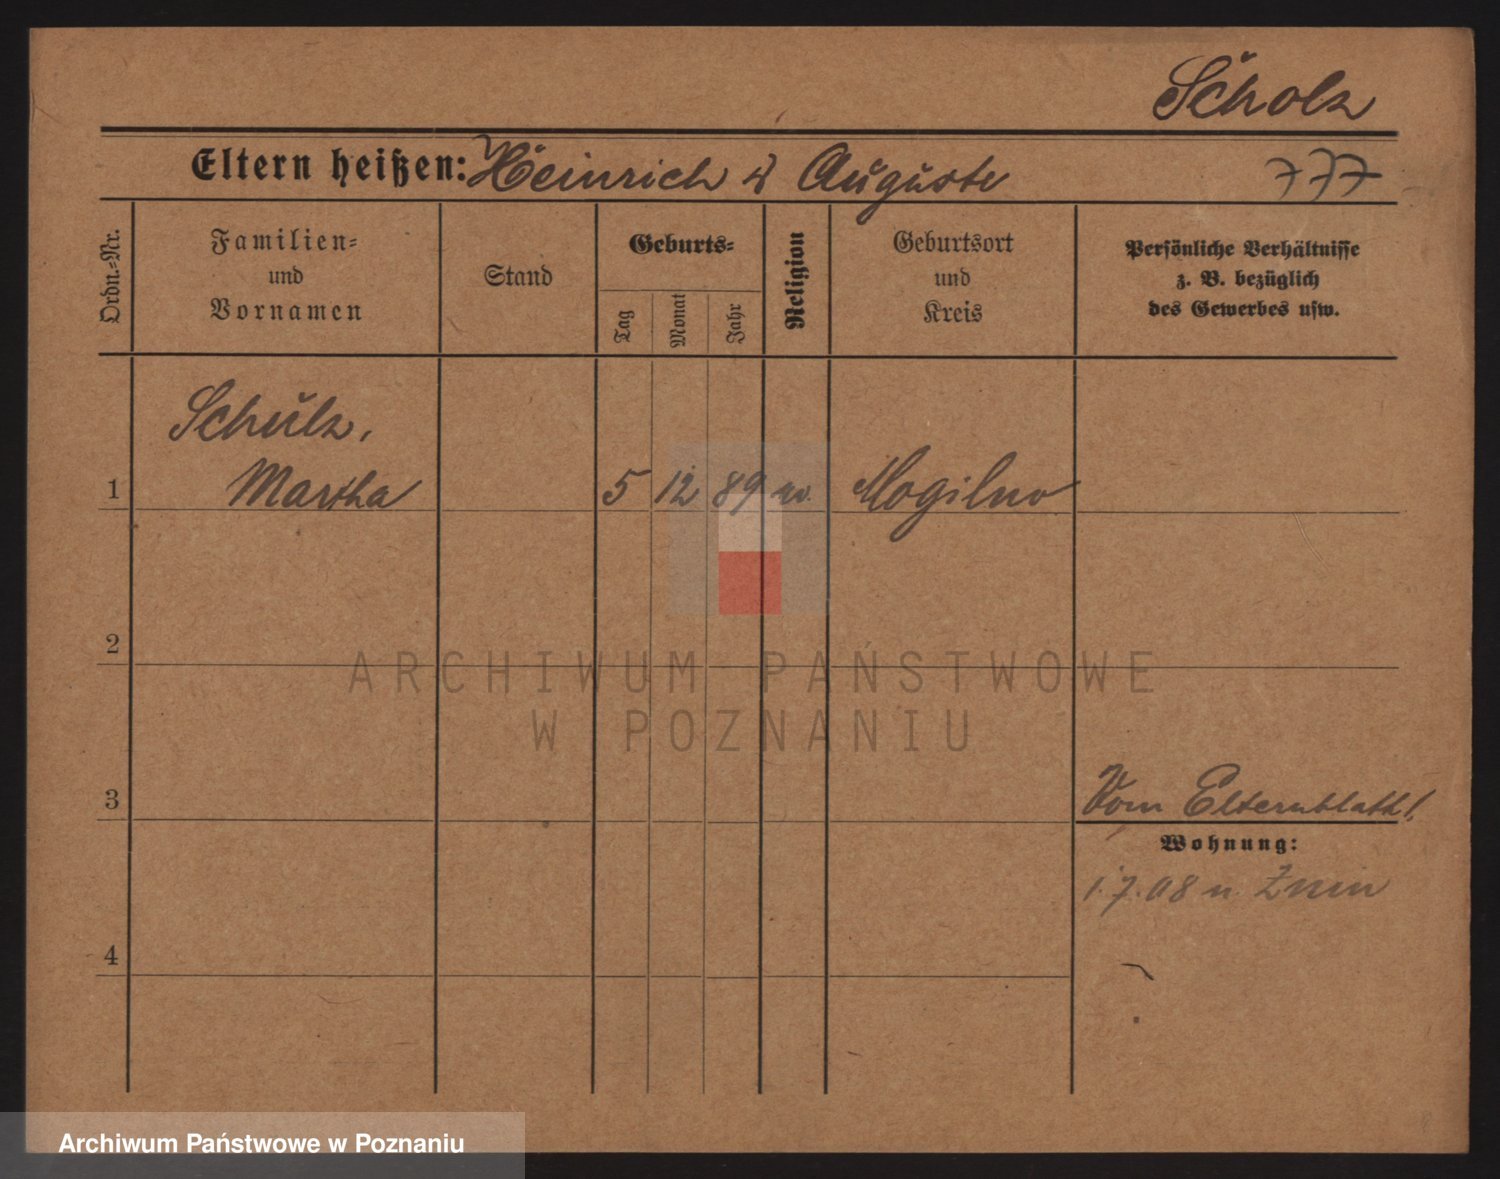 Scholz
Eltern heißen: Heinrich u Auguste 777
Ordn.-Nr.
Familien-
und
Vornamen
Stand
Geburts-
Tag
Monat
Jahr
Religion
Geburtsort
und
Kreis
Persönliche Verhältnisse
z. B. bezüglich
des Gewerbes usw.
Schulz,
1 Martha 5 12 89 Mogilno
2
ARCHIWUM PAŃSTWOWE
W POZNANIU
3 Vom Elternblatt!
Wohnung:
1.7.08 n. Znin
4
Archiwum Państwowe w Poznaniu